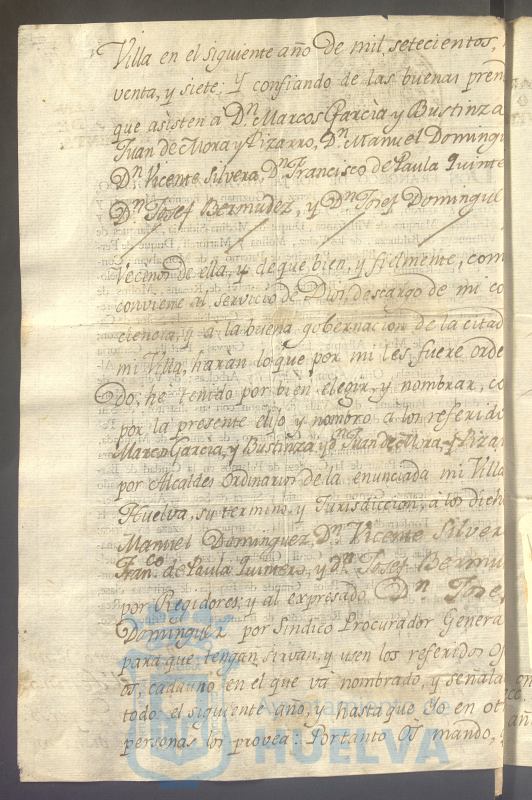 Villa en el siguiente año de mil, setecientos,
venta, y siete; Y confiando de las buenas pren
que asisten a Dn. Marcos Garcìa y Bustinza
Juan de Mora y Pizarro, Dn. Manuel Domingu
Dn. Vicente Silvera, Dn. Francisco de Paula Quinte
Dn. Josef Bermudez, y Dn. Josef Domingue
Vecinos de ella, y de que bien, y fielmente, com
conviene al servicio de Dios, descargo de mi co
ciencia, y a la buena gobernacion de la citad
mi Villa, haràn lo que por mi les fuere orde
do; he tenido por bien elegir, y nombrar, co
por la presente elijo y nombro a los referido
Marcos Garcia, y Bustinza y Dn. Juan de Mora y Pizar
por Alcaldes Ordinarios de la enunciada mi Villa
Huelva, su termino, y Jurisdiccion, à los dich
Manuel Dominguez, Dn. Vicente Silver
Franco. de Paula Quintero, y Dn. Josef Bermu
por Regidores; y al expresado Dn. Jose
Dominguez por Sindico Procurador Genera
para que tengan, sirvan, y usen los referidos Of
os, cada uno en el que va nombrado, y señala
todo el siguiente año, y hasta que Yo en ot
personas los provea: Portanto Os mando,
Ayuntamiento
HUELVA